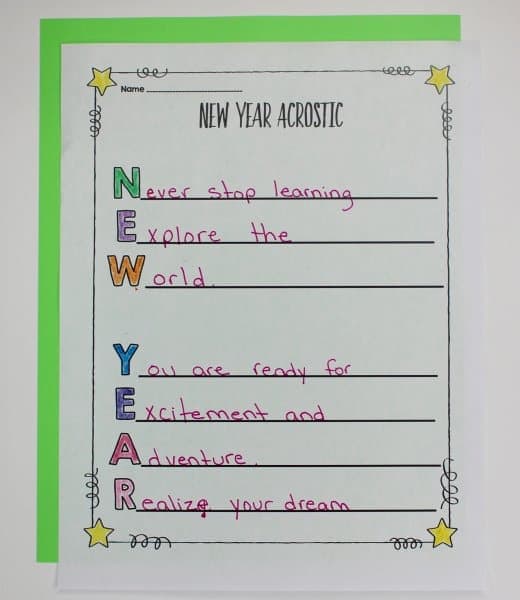 Name
NEW YEAR ACROSTIC
Never stop learning
Explore the
World.
You are ready for
Excitement and
Adventure.
Realize your dream